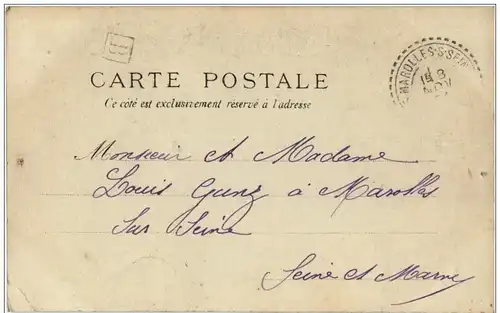 MAROLLES-S-SEINE
CARTE POSTALE
Ce côté est exclusivement réservé à l'adresse
Monsieur et Madame
Louis Gung à Marolles
Sur Seine
Seine et Marne